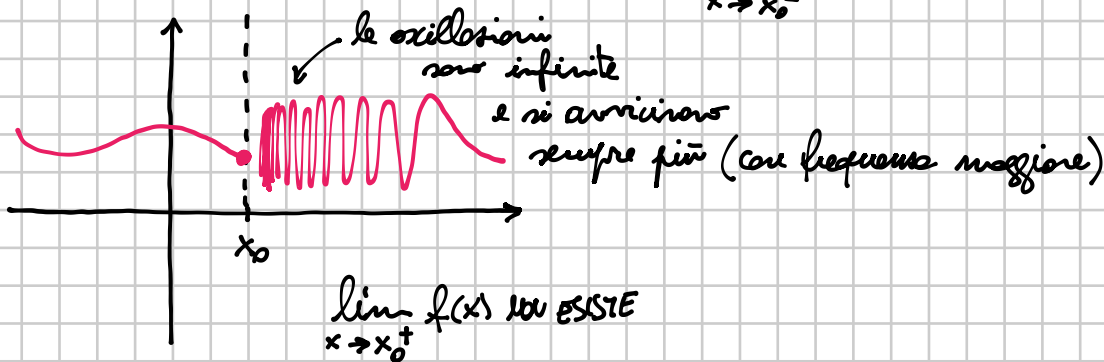 x → x₀⁻
le oscillazioni
sono infinite
e si avvicinano
sempre più (con frequenza maggiore)
x₀
lim f(x) NON ESISTE
x → x₀⁺